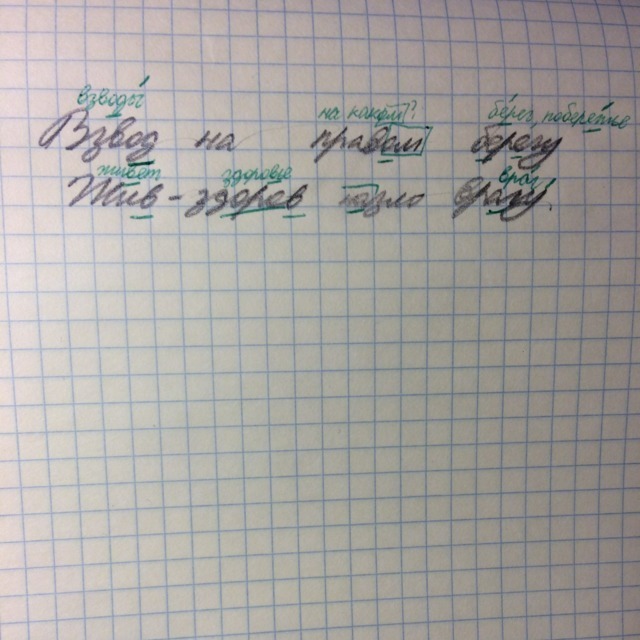 взводы на каком? берег, побережье
Взвод на правом берегу
живёт здоровье враг
Жив-здоров назло врагу.